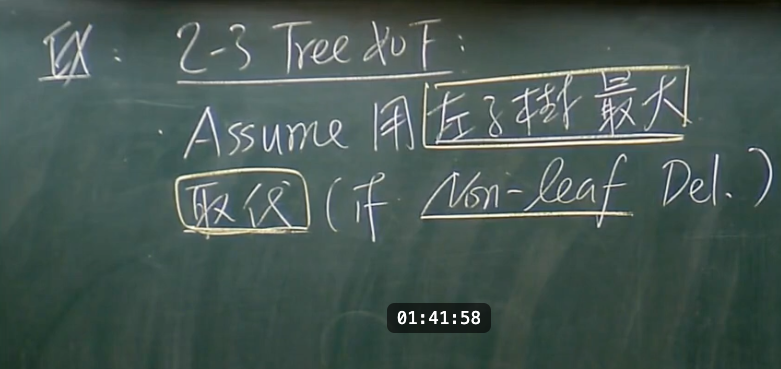 EX: 2-3 Tree如下:
Assume 用左子樹最大
取代 (if Non-leaf Del.)
01:41:58